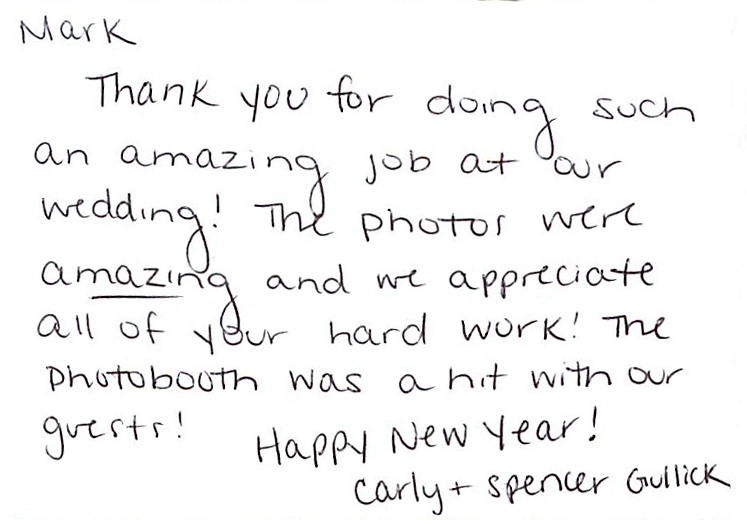 Mark
Thank you for doing such
an amazing job at our
wedding! The photos were
amazing and we appreciate
all of your hard work! The
photobooth was a hit with our
guests!
Happy New Year!
Carly + Spencer Gullick